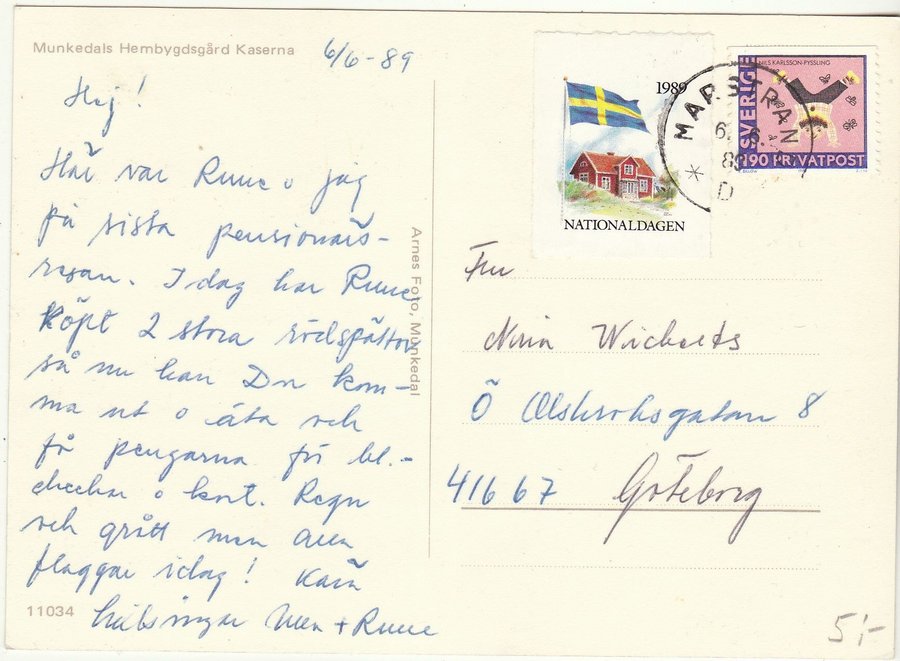 Munkedals Hembygdsgård Kaserna
6/6-89
Hej!
Här var Rune o jag
på sista pensionärs-
resan. I dag har Rune
köpt 2 stora rödspättor
så nu kan Du kom-
ma ut o äta och
få pengarna för bl.-
checkar o kort. Regn
och grått men även
flaggar idag! Kära
hälsningar + Rune
11034
Arnes Foto, Munkedal
1989
NATIONALDAGEN
MARSTRAND
6. 6.
89
D
NILS KARLSSON-PYSSLING
SVERIGE
190 PRIVATPOST
Fru
Nina
Ö Olskroksgatan 8
416 67 Göteborg
5:-